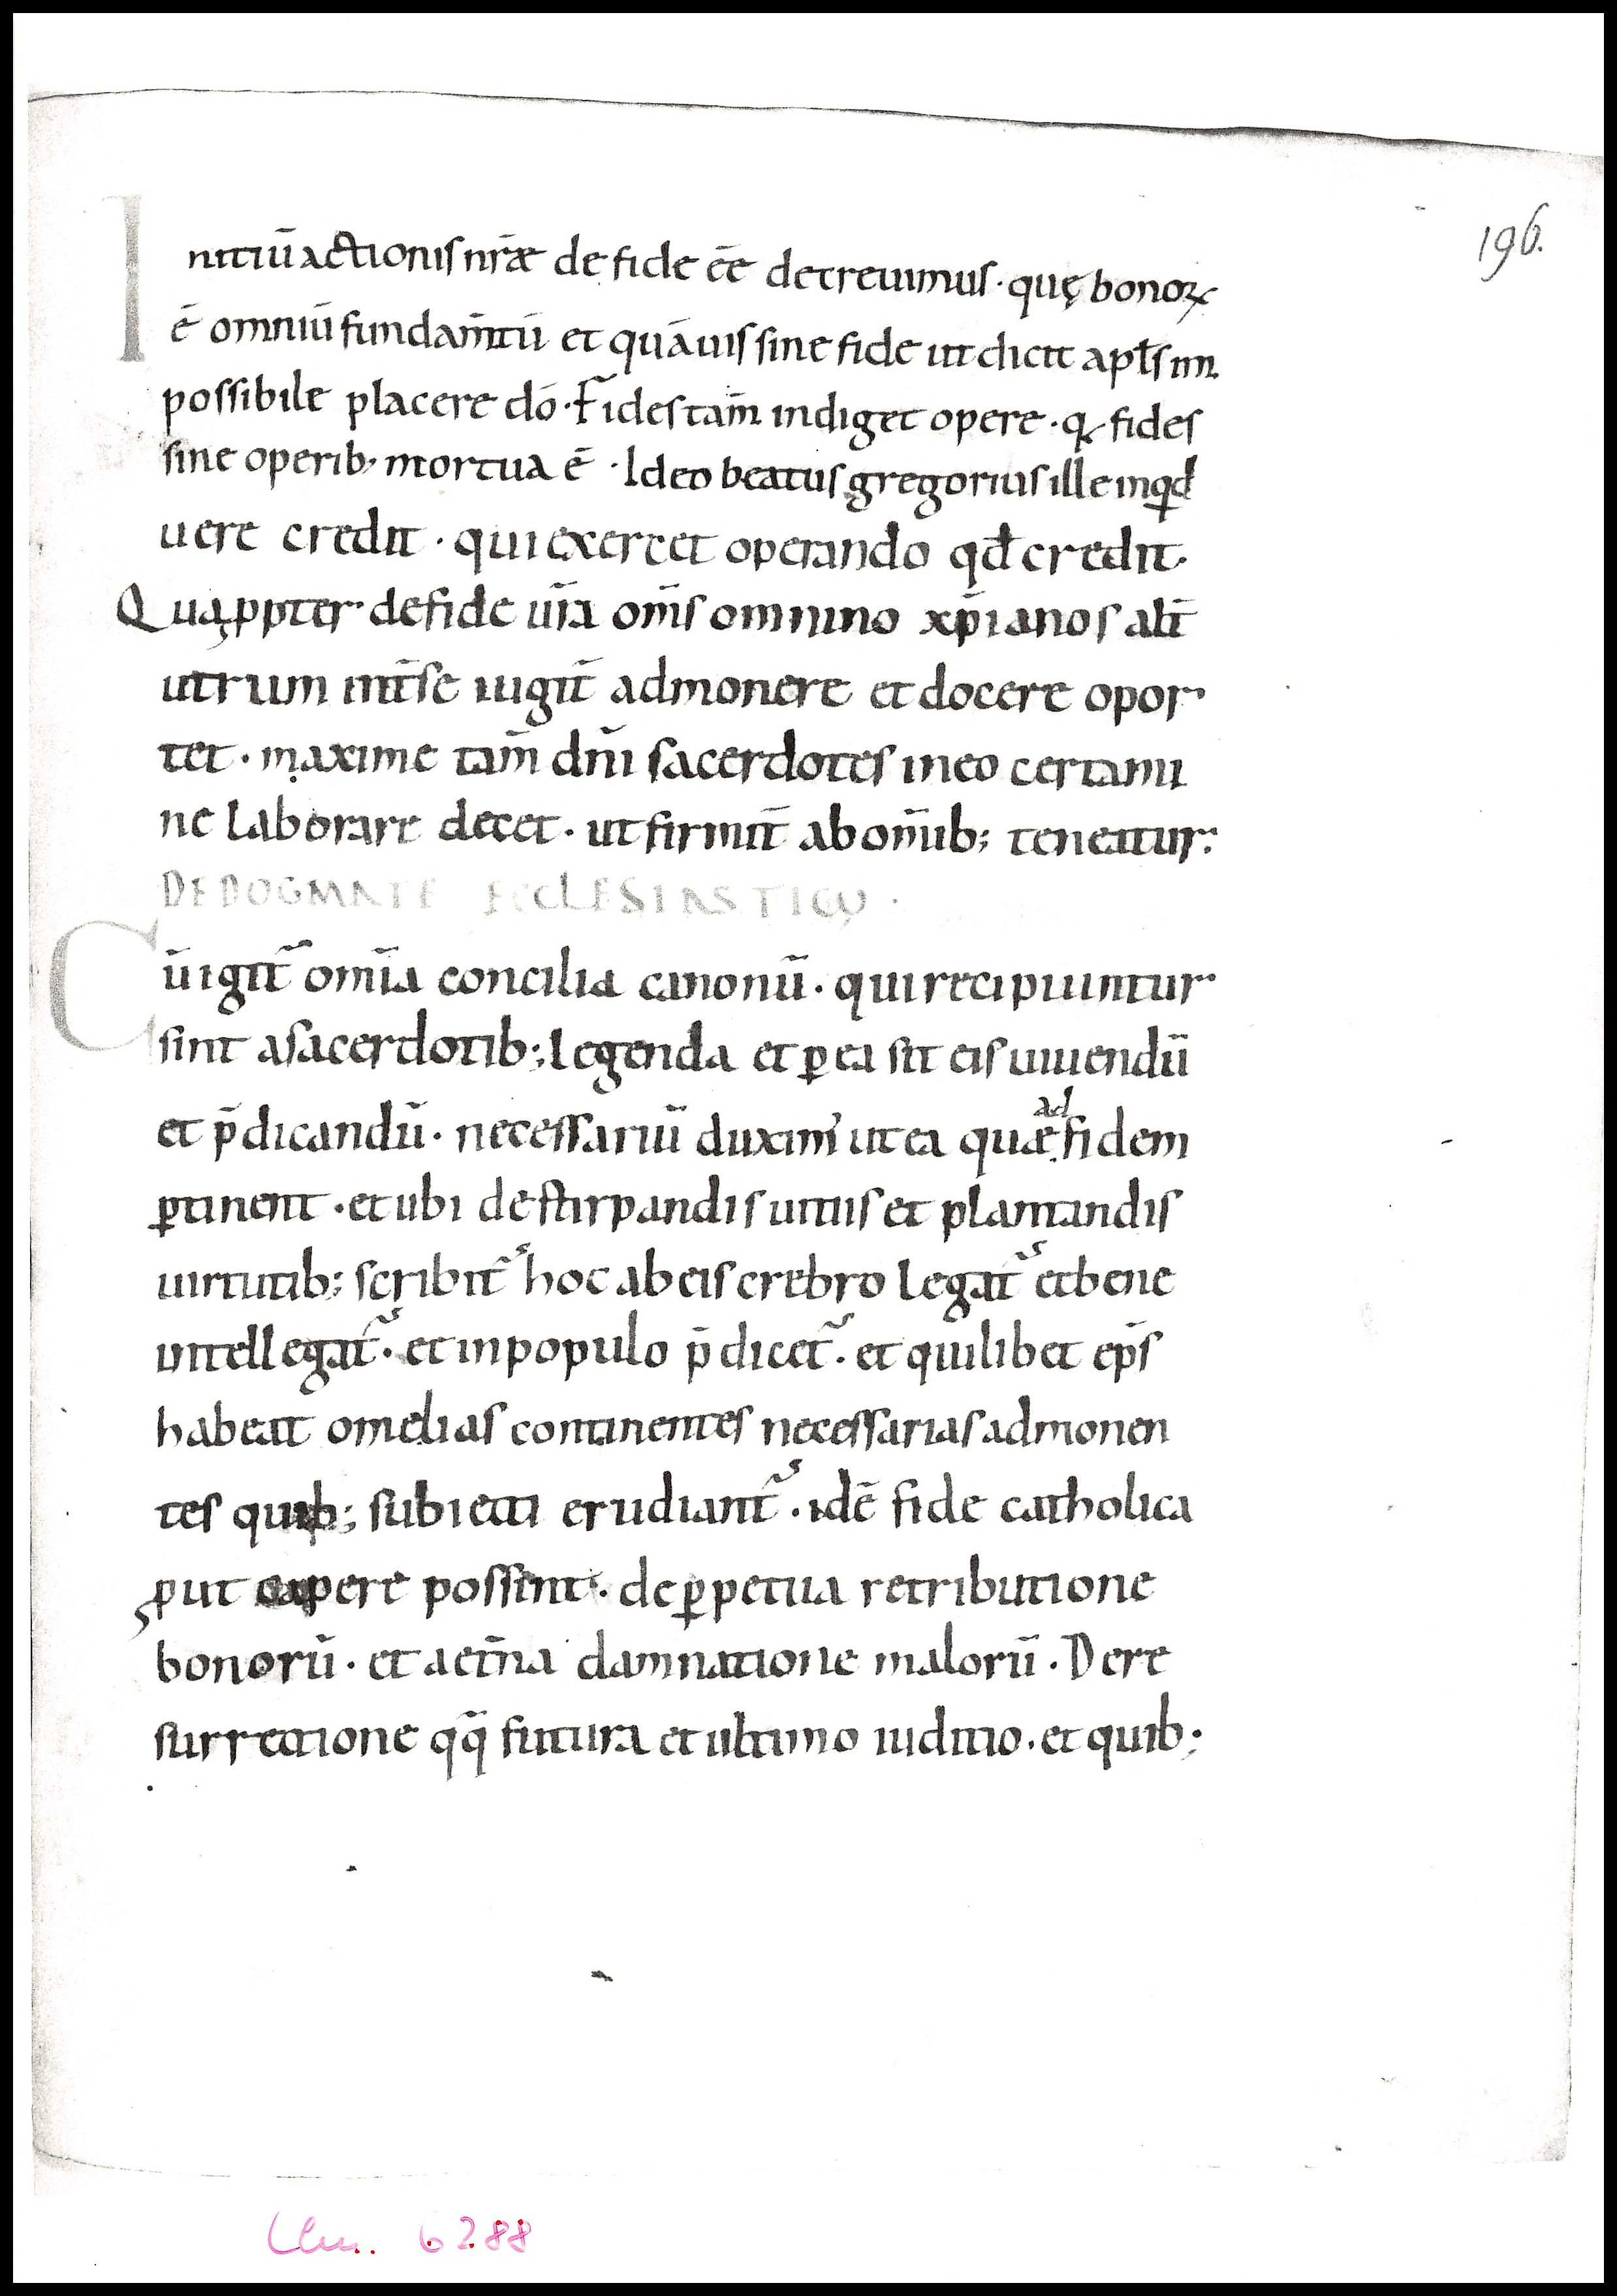 196.
Initiū actionis nr̄æ de fide ēē decrevimus · quę bonoꝝ
ē omniū fundam̄tū et quāuis sine fide ut dicit apłs im
possibile placere dō · Fides tam̄ indiget opere · q; fides
sine operib; mortua ē · Ideo beatus gregorius ille inqͥd
uere credit · qui exercet operando qđ credit ·
Quaꝓpter de fide ūra om̄s omnino xp̄ianos alt̄
utrum int̄ se iugit̄ admonere et docere opor
tet · maxime tam̄ dn̄i sacerdotes in eo certami
ne laborare decet · ut firmit̄ ab om̄ib; teneatur ·
DE DOGMATE ECCLESIASTICO ·
Cū igit̄ om̄ia concilia canonū · qui recipiuntur
sint a sacerdotib; legenda et ꝑ ea sit eis uiuendū
et p̄dicandū · necessariū duxim' ut ea quæ ad fidem
ꝑtinent · et ubi de stirpandis uitiis et plantandis
uirtutib; scribit̄ hoc ab eis crebro legat̄ et bene
intellegat̄ · et in populo p̄dicet̄ · et quilibet ep̄s
habeat omelias continentes necessarias admonen
tes quib; subiecti erudiant̄ · idē fide catholica
ꝓut capere possint · de ꝑpetua retributione
bonorū · et aet̄na damnatione malorū · De re
surrectione qq̄ futura et ultimo iuditio · et quib;
Clm. 6288